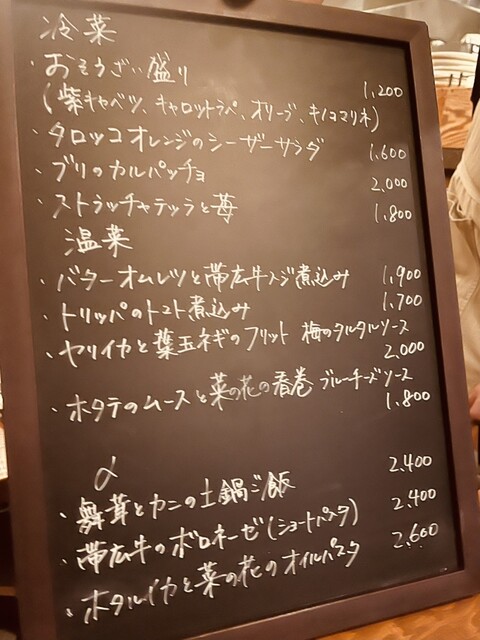 冷菜
・おそうざい盛り 1,200
(紫キャベツ、キャロットラペ、オリーブ、キノコマリネ)
・タロッコオレンジのシーザーサラダ 1,600
・ブリのカルパッチョ 2,000
・ストラッチャテッラと苺 1,800
温菜
・バターオムレツと帯広牛スジ煮込み 1,900
・トリッパのトマト煮込み 1,700
・ヤリイカと葉玉ネギのフリット 梅のタルタルソース
2,000
・ホタテのムースと菜の花の春巻 ブルーチーズソース
1,800
〆
・舞茸とカニの土鍋ご飯 2,400
・帯広牛のボロネーゼ(ショートパスタ) 2,400
・ホタルイカと菜の花のオイルパスタ 2,600